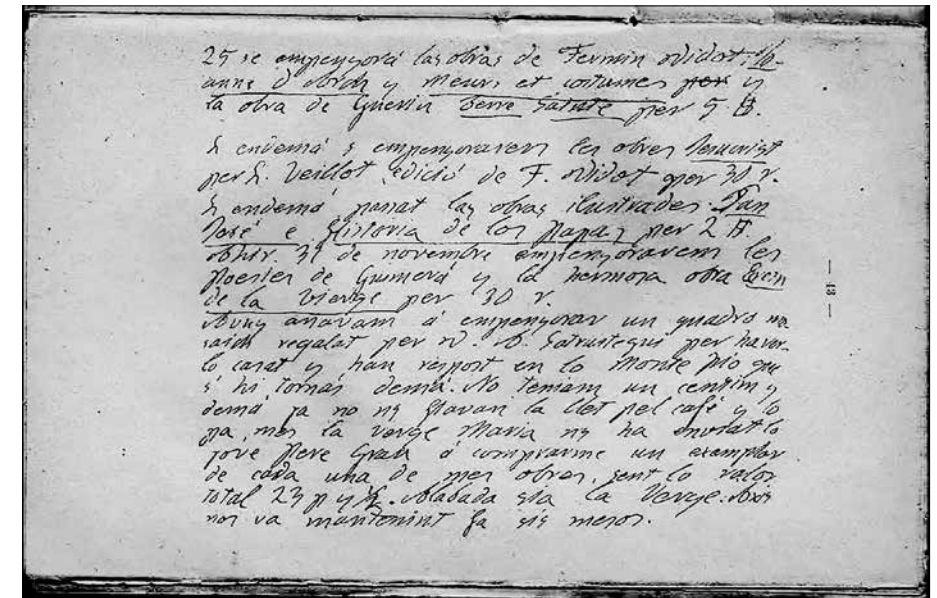 25 se empenyorá las obras de Fermin Didot: Jo-
anne d'
y Meurs et costumes per y
la obra de Guerin Terre Sainte per 5 d.
L endemá s empenyoraren les obres Jesucrist
per L. Veillot, edició de F. Didot per 30 r.
L endemá passat las obras ilustrades San
José e Historia de los Papas per 2 d.
Ahir. 31 de novembre empenyorarem les
Poesies de Guimerá y la hermosa obra
de la Vierge per 30 r.
Avuy anavam á empenyorar un quadro ma
regalat per D. Satrustegui per haver-
lo casat y han respost en lo Monte Pio que
s hi tornás demá. No teniam un centim y
demá ja no ns davan la llet pel café y lo
pa, mes la Verge Maria ns ha enviat lo
jove Pere Grau á comprarme un exemplar
de cada una de mes obres, sent lo valor
total 23 p y ½. Alabada sia la Verge. Axis
nos va mantenint fa sis mesos.
— 43 —